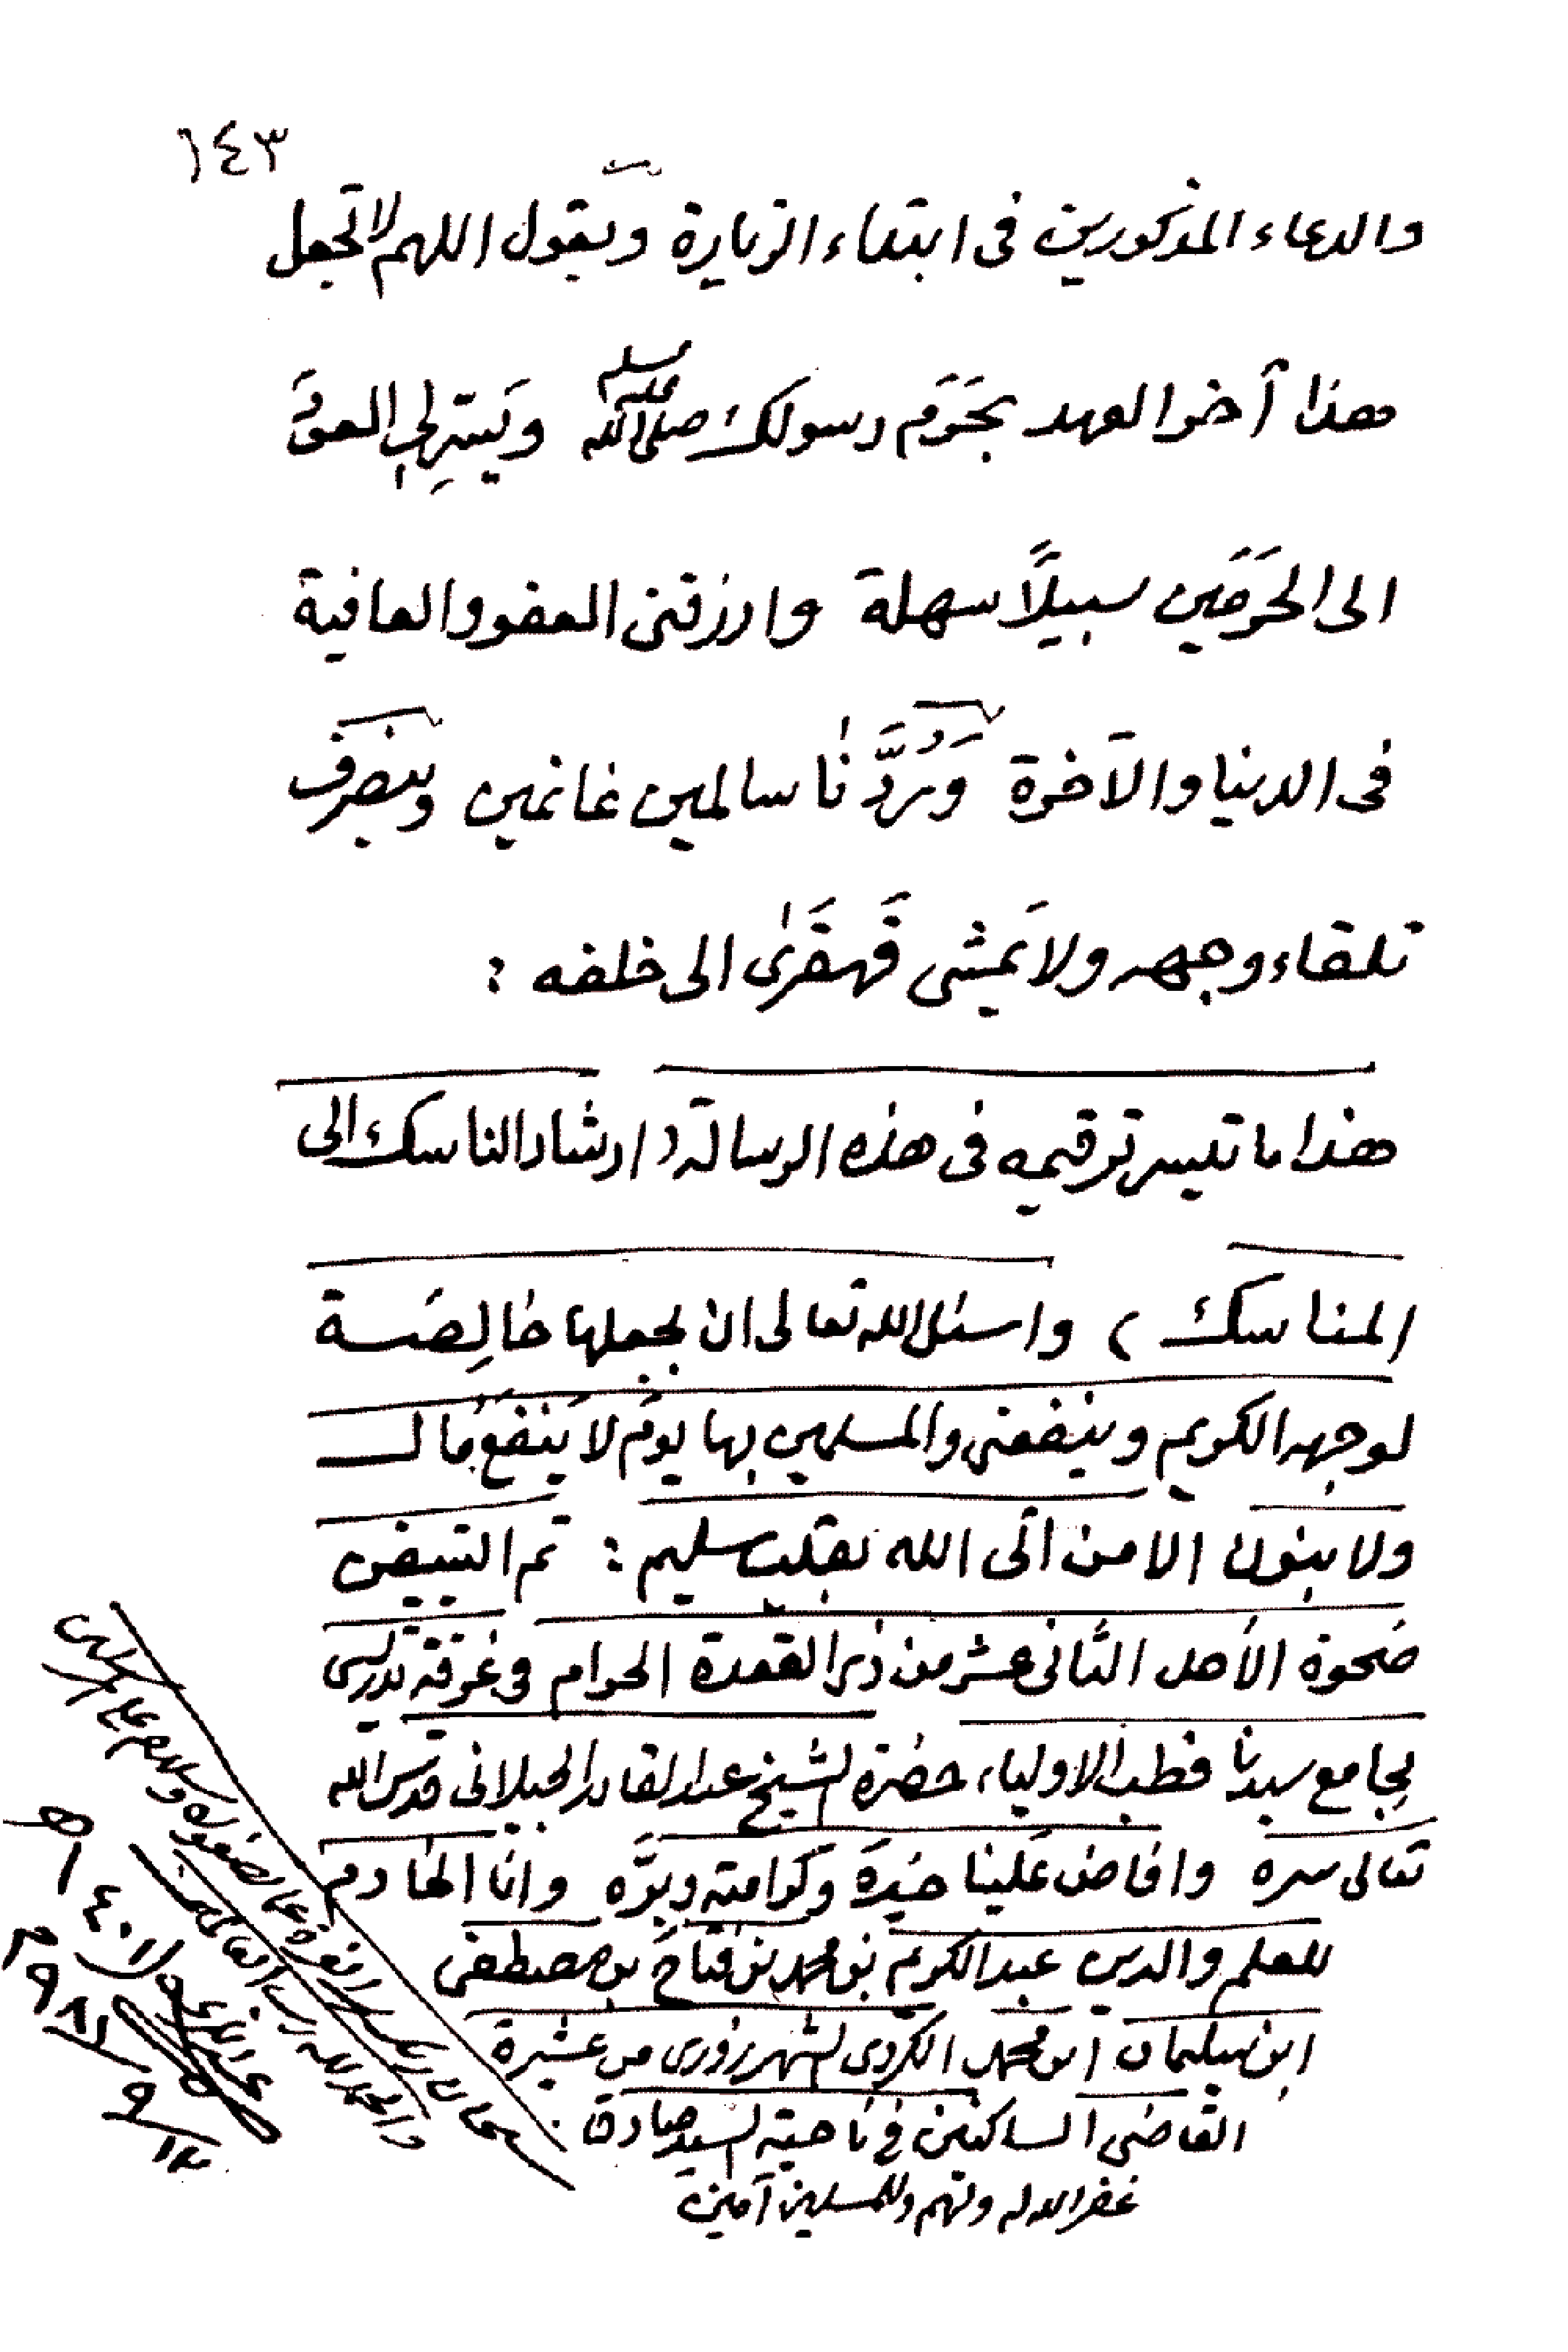 ١٤٣
والدعاء المذكورين فى ابتداء الزيارة ويقول اللهم لا تجعل
هذا آخر العهد بحَرَم رسولك صلى الله عليه وسلم ويَسِّر لِى العَوْدَ
الى الحَرَمَين سبيلًا سهلة وارزقنى العفو والعافية
فى الدنيا والآخرة وَرُدَّنا سالمين غانمين وينصرف
تلقاء وجهه ولا يَمشى قَهقَرىٰ الى خلفه :
هذا ما تيسر ترقيمه فى هذه الرسالة ( ارشاد الناسك الى
المناسك ) واسئل الله تعالى ان يجعلها خالِصَة
لوجهه الكريم وينفعنى والمسلمين بها يومَ لا يَنفَعُ مال
ولا بنون الا من اتى الله بقلب سليم : تم التبييض
ضحوة الأحد الثانى عشر من ذى القعدة الحرام فى غرفة تدريسى
بجامع سيدنا قطب الاولياء حضرة الشيخ عبد القادر الجيلانى قدس الله
تعالى سره وافاض عَلينا خَيرَهَ وكرامته وبِرَّه وانا الخادم
للعلم والدين عبد الكريم بن محمد بن فتاح بن مصطفى
ابن سليمان ابن محمد الكردى الشهرزورى من عشيرة
القاضى الساكنين فى ناحية السيد صادق
غفر الله له ولهم وللمسلمين آمين
سبحان ربك رب العزة عما يصفون وسلام على المرسلين
والحمد لله رب العالمين
١٤٠١ هـ
١٣/٩/١٩٨١ م